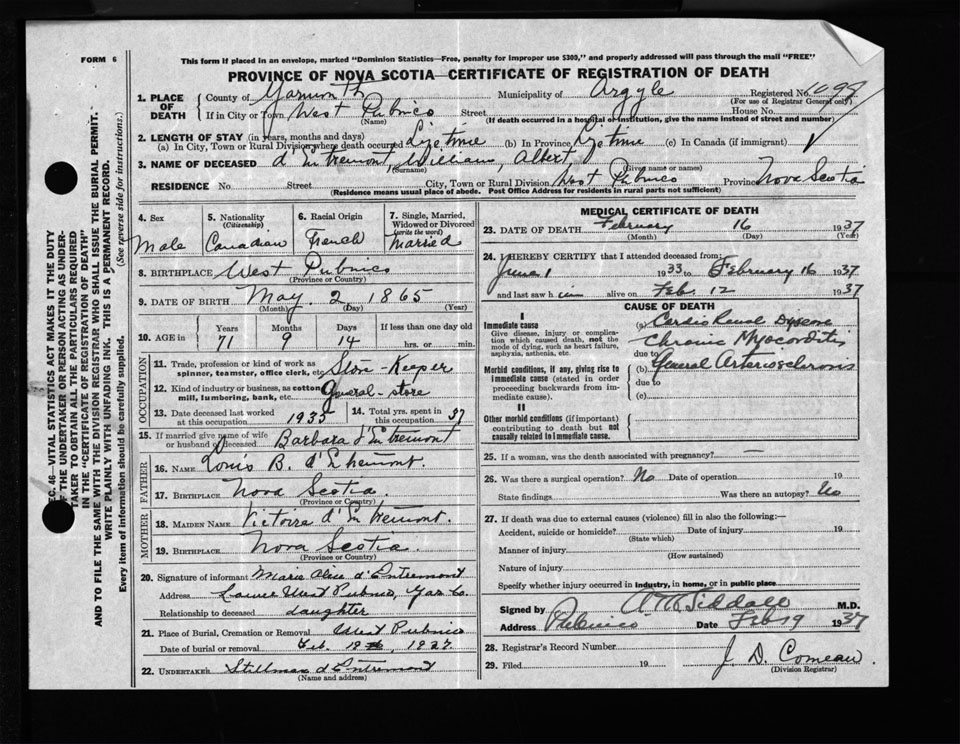 FORM 6
This form if placed in an envelope, marked "Dominion Statistics—Free, penalty for improper use $300," and properly addressed will pass through the mail "FREE"
PROVINCE OF NOVA SCOTIA—CERTIFICATE OF REGISTRATION OF DEATH
1. PLACE OF DEATH
County of Yarmouth Municipality of Argyle Registered No.
(For use of Registrar General only)
If in City or Town West Pubnico Street House No.
(Name) (If death occurred in a hospital or institution, give the name instead of street and number)
2. LENGTH OF STAY (in years, months and days)
(a) In City, Town or Rural Division where death occurred Lifetime (b) In Province Lifetime (c) In Canada (if immigrant)
3. NAME OF DECEASED d'Entremont, William, Albert,
(Surname) (Given name or names)
RESIDENCE No Street City, Town or Rural Division West Pubnico Province Nova Scotia
(Residence means usual place of abode. Post Office Address for residents in rural parts not sufficient)
4. Sex
Male
5. Nationality
(Citizenship)
Canadian
6. Racial Origin
French
7. Single, Married, Widowed or Divorced
(write the word)
Married
8. BIRTHPLACE West Pubnico
(Province or Country)
9. DATE OF BIRTH May. 2 1865
(Month) (Day) (Year)
10. AGE in Years Months Days If less than one day old
71 9 14 hrs. or min.
OCCUPATION
11. Trade, profession or kind of work as
spinner, teamster, office clerk, etc. Store-Keeper
12. Kind of industry or business, as cotton
mill, lumbering, bank, etc. General-store
13. Date deceased last worked
at this occupation 1935
14. Total yrs. spent in
this occupation 37
15. If married give name of wife
or husband of deceased Barbara d'Entremont
FATHER
16. NAME Louis B. d'Entremont.
17. BIRTHPLACE Nova Scotia
(Province or Country)
MOTHER
18. MAIDEN NAME Victoire d'Entremont.
19. BIRTHPLACE Nova Scotia.
(Province or Country)
20. Signature of informant Marie Alice d'Entremont
Address West Pubnico, Yar. Co.
Relationship to deceased daughter
21. Place of Burial, Cremation or Removal West Pubnico
Date of burial or removal Feb. 18
22. UNDERTAKER Stillman d'Entremont
(Name and address)
MEDICAL CERTIFICATE OF DEATH
23. DATE OF DEATH February 16 1937
(Month) (Day)
24. I HEREBY CERTIFY that I attended deceased from:
June 1 1933 to February 16 1937
and last saw him alive on Feb. 12 1937
CAUSE OF DEATH
I
Immediate cause
Give disease, injury or complication which caused death, not the mode of dying, such as heart failure, asphyxia, asthenia, etc.
(a) Cardio Renal Disease
Chronic Myocarditis
due to
Morbid conditions, if any, giving rise to immediate cause (stated in order proceeding backwards from immediate cause).
(b) General Arteriosclerosis
due to
(c)
II
Other morbid conditions (if important) contributing to death but not causally related to immediate cause.
25. If a woman, was the death associated with pregnancy? —
26. Was there a surgical operation? No Date of operation 19
State findings Was there an autopsy? No
27. If death was due to external causes (violence) fill in also the following:—
Accident, suicide or homicide? Date of injury 19
(State which)
Manner of injury
(How sustained)
Nature of injury
Specify whether injury occurred in industry, in home, or in public place
Signed by Siddall M.D.
Address Pubnico Date Feb 19 1937
28. Registrar's Record Number
29. Filed 19 J. D. Comeau
(Division Registrar)
SEC. 46—VITAL STATISTICS ACT MAKES IT THE DUTY
OF THE UNDERTAKER OR PERSON ACTING AS UNDER-
TAKER TO OBTAIN ALL THE PARTICULARS REQUIRED
IN THE "CERTIFICATE OF REGISTRATION OF DEATH"
AND TO FILE THE SAME WITH THE DIVISION REGISTRAR WHO SHALL ISSUE THE BURIAL PERMIT.
WRITE PLAINLY WITH UNFADING INK. THIS IS A PERMANENT RECORD.
Every item of information should be carefully supplied. (See reverse side for instructions.)